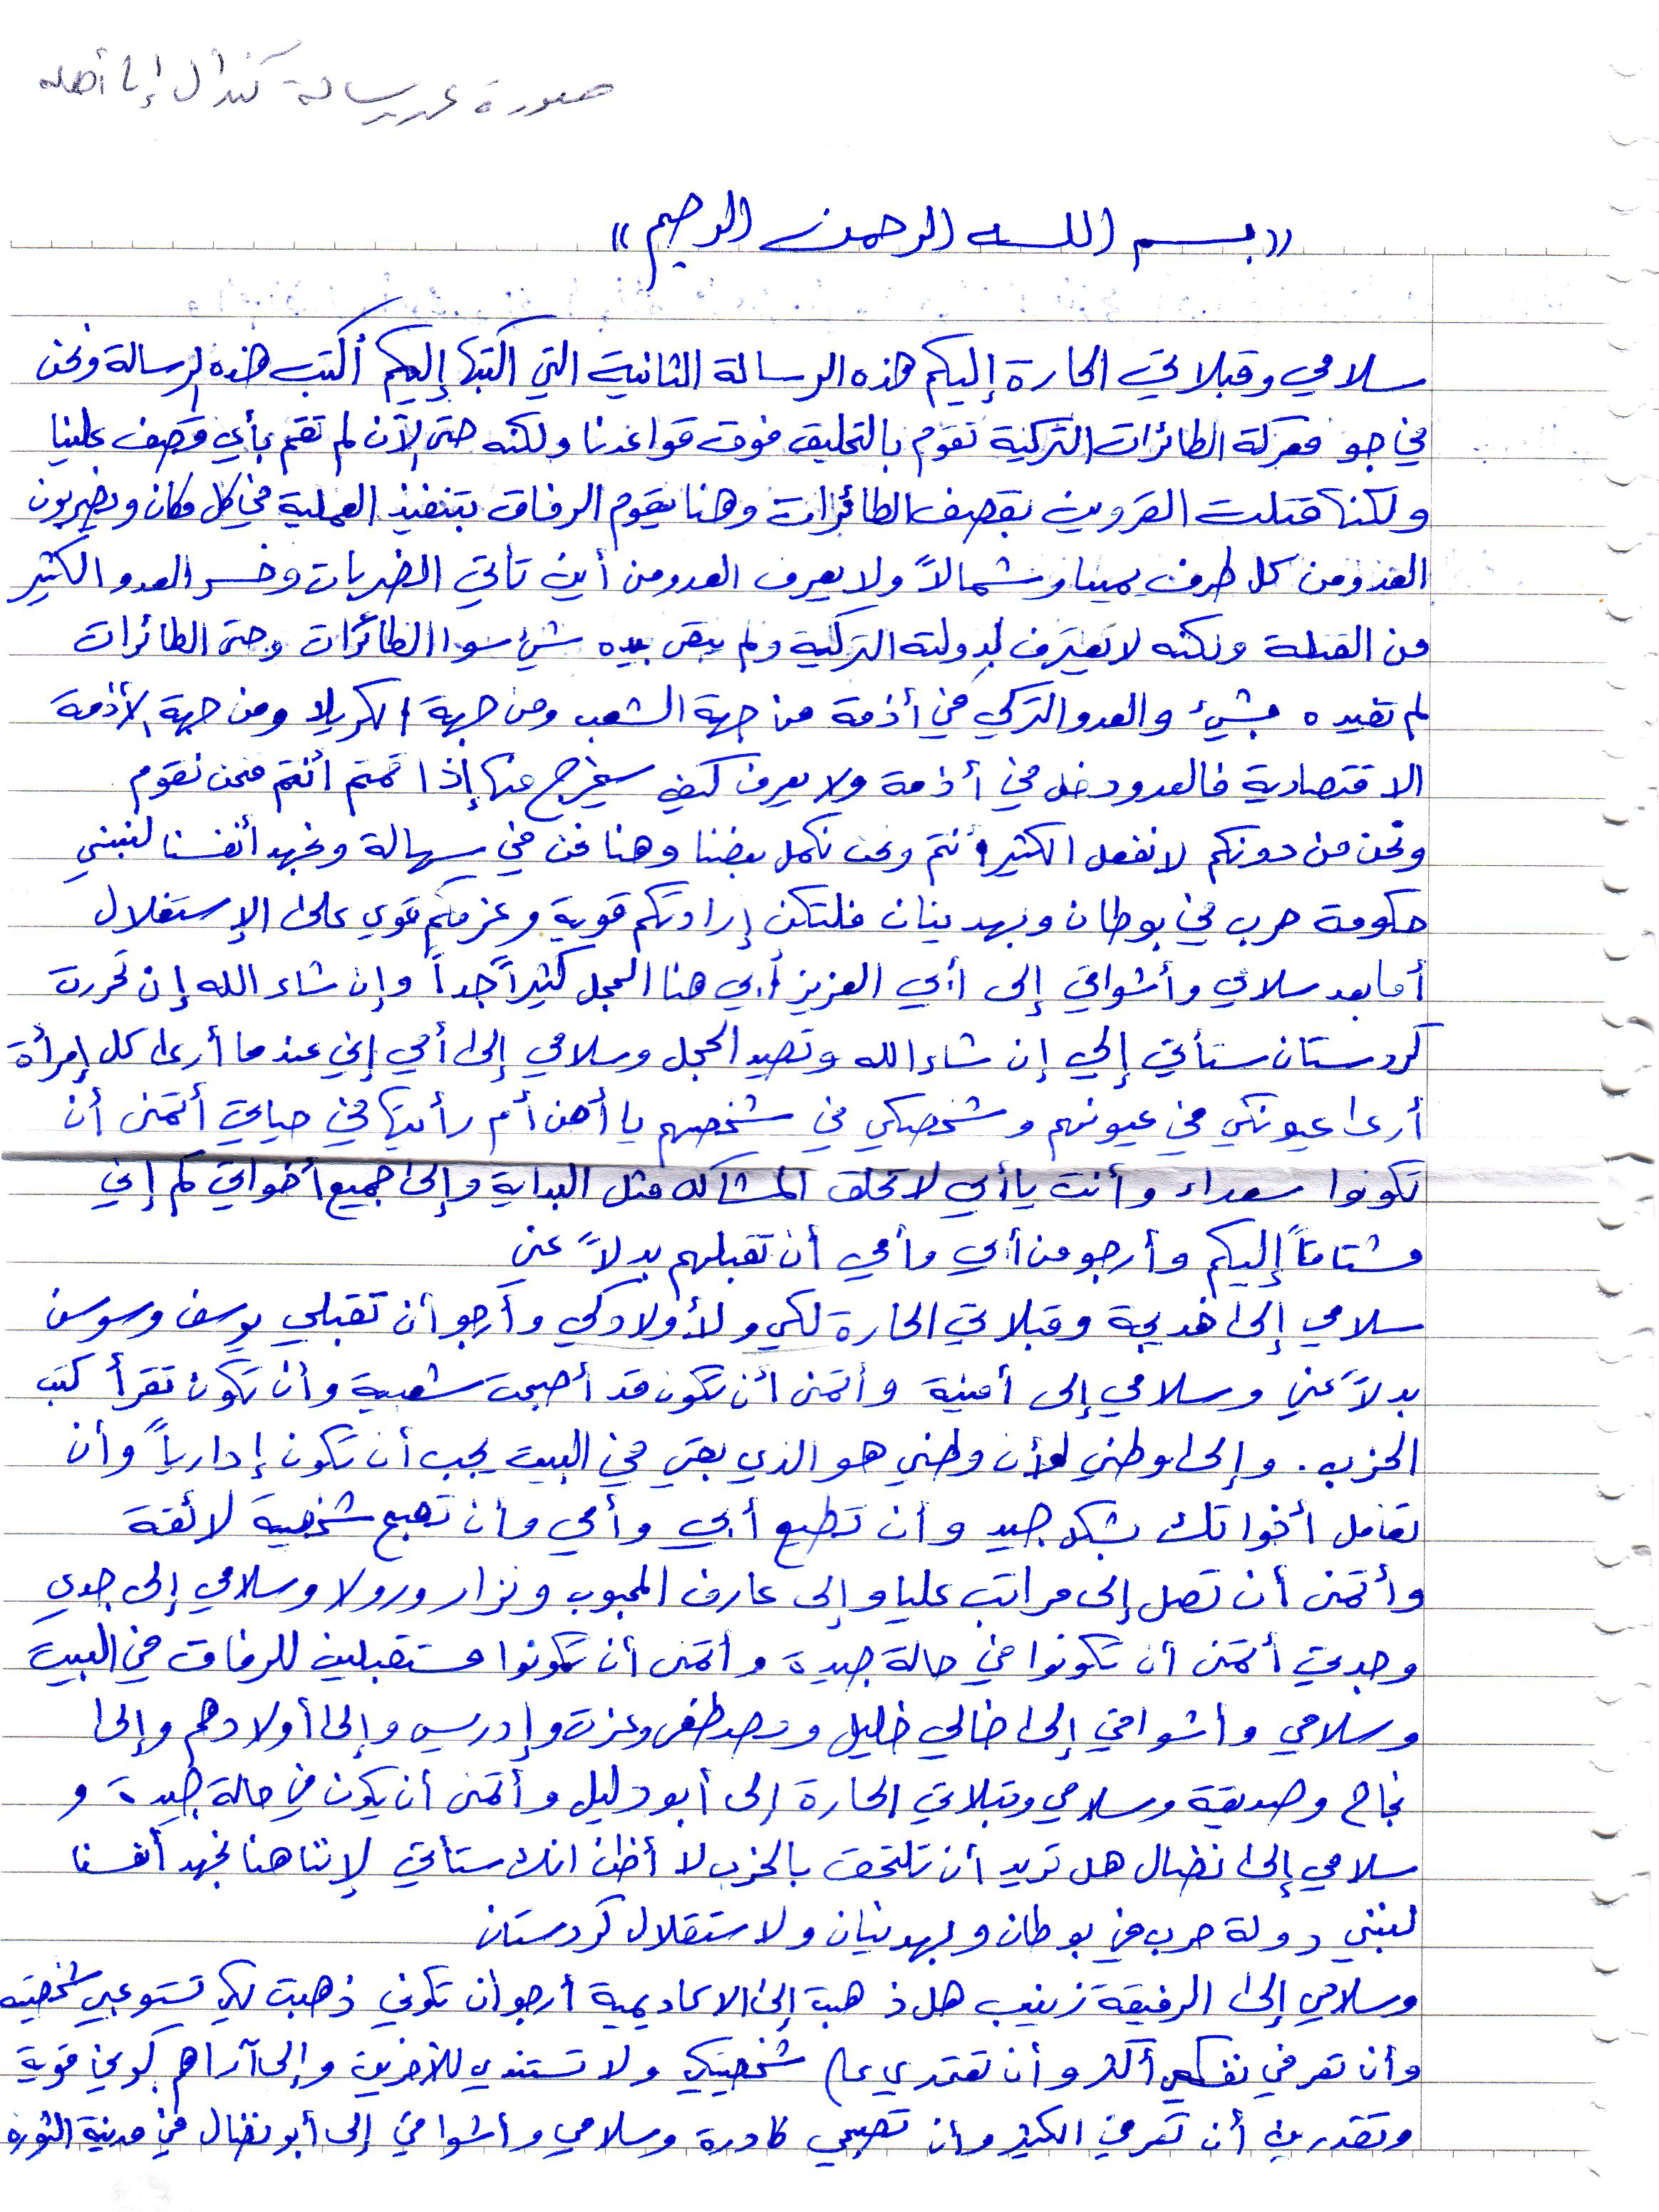 صورة عن رسالة كندال إلى أهله
«بسم اللـه الرحمن الرحيم»
سلامي وقبلاتي الحارة إليكم هذه الرسالة الثانية التي اكتبها إليكم أكتب هذه الرسالة ونحن
في جو معركة الطائرات التركية تقوم بالتحليق فوق قواعدنا ولكنه حتى الآن لم تقم بأي قصف علينا
ولكنها قتلت القرويين بقصف الطائرات وهنا يقوم الرفاق بتنفيذ العملية في كل مكان ويضربون
العدو من كل طرف يمينا وشمالاً ولا يعرف العدو من أين تأتي الضربات وخسر العدو الكثير
من القتلة ولكنه لا يعترف لدولته التركية ولم يبقى بيده شيئ سوا الطائرات وحتى الطائرات
لم تفيده بشيئ والعدو التركي في أذمة من جهة الشعب ومن جهة الكريلا ومن جهة الأذمة
الاقتصادية فالعدو دخل في أذمة ولا يعرف كيف سيخرج عنها إذا قمتم أنتم فنحن نقوم
ونحن من دونكم لا نفعل الكثير أنتم ونحن نكمل بعضنا وهنا نحن في سهالة ونجهد أنفسنا لنبني
حكومة حرب في بوطان وبهدينان فلتكن إرادتكم قوية وعزمكم قوي على الإستقلال
أما بعد سلامي وأشواقي إلى أبي العزيز أبي هنا الحجل كثيراً جداً وإن شاء الله إن تحررت
كردستان ستأتي إلي إن شاء الله وتصيد الحجل وسلامي إلى أمي إني عندما أرى كل إمرأة
أرى عيونكي في عيونهم وشخصكي في شخصهم يا أحن أم رأيتها في حياتي أتمنى أن
تكونوا سعداء وأنت يا أبي لا تخلق المشاكل مثل البداية وإلى جميع أخواتي كم إني
مشتاقاً إليكم وأرجو من أبي وأمي أن تقبلهم بدلاً عني
سلامي إلى خديجة وقبلاتي الحارة لكي ولأولادكي وأرجو أن تقبلي يوسف وسوسن
بدلاً عني وسلامي إلى أمينة وأتمنى أن تكون قد أصبحت شعبية وأن تكون تقرأ كتب
الحزب . وإلى وطني لأن وطني هو الذي بقي في البيت يجب أن تكون إدارياً وأن
تعامل أخواتك بشكل جيد وأن تطيع أبي وأمي وأن تصبح شخصية لائقة
وأتمنى أن تصل إلى مراتب عليا وإلى عارف المحبوب ونزار ورولا وسلامي إلى جدي
وجدتي أتمنى أن تكونوا في حالة جيدة وأتمنى أن تكونوا مستقبلين للرفاق في البيت
وسلامي وأشواقي إلى خالي خليل ومصطفى وعزت وإدريس وإلى أولادهم وإلى
نجاح وصديقة وسلامي وقبلاتي الحارة إلى أبو دليل وأتمنى أن يكون في حالة جيدة و
سلامي إلى نضال هل تريد أن تلتحق بالحزب لا أظن انك ستأتي لإننا هنا نجهد أنفسنا
لنبني دولة حرب في بوطان وبهدنيان ولاستقلال كردستان
وسلامي إلى الرفيقة زينب هل ذهبت إلى الاكاديمية أرجو أن تكوني ذهبت لكي تستوعبي شخصيته
وأن تعرفي نفسكي أكثر وأن تعتمدي على شخصيتكي ولا تستندي للآخرين وإلى آراهم كوني قوية
وتقدرين أن تعرفي الكثير وأن تصبحي كادرة وسلامي وأشواقي إلى أبو نضال في مدينة الثورة